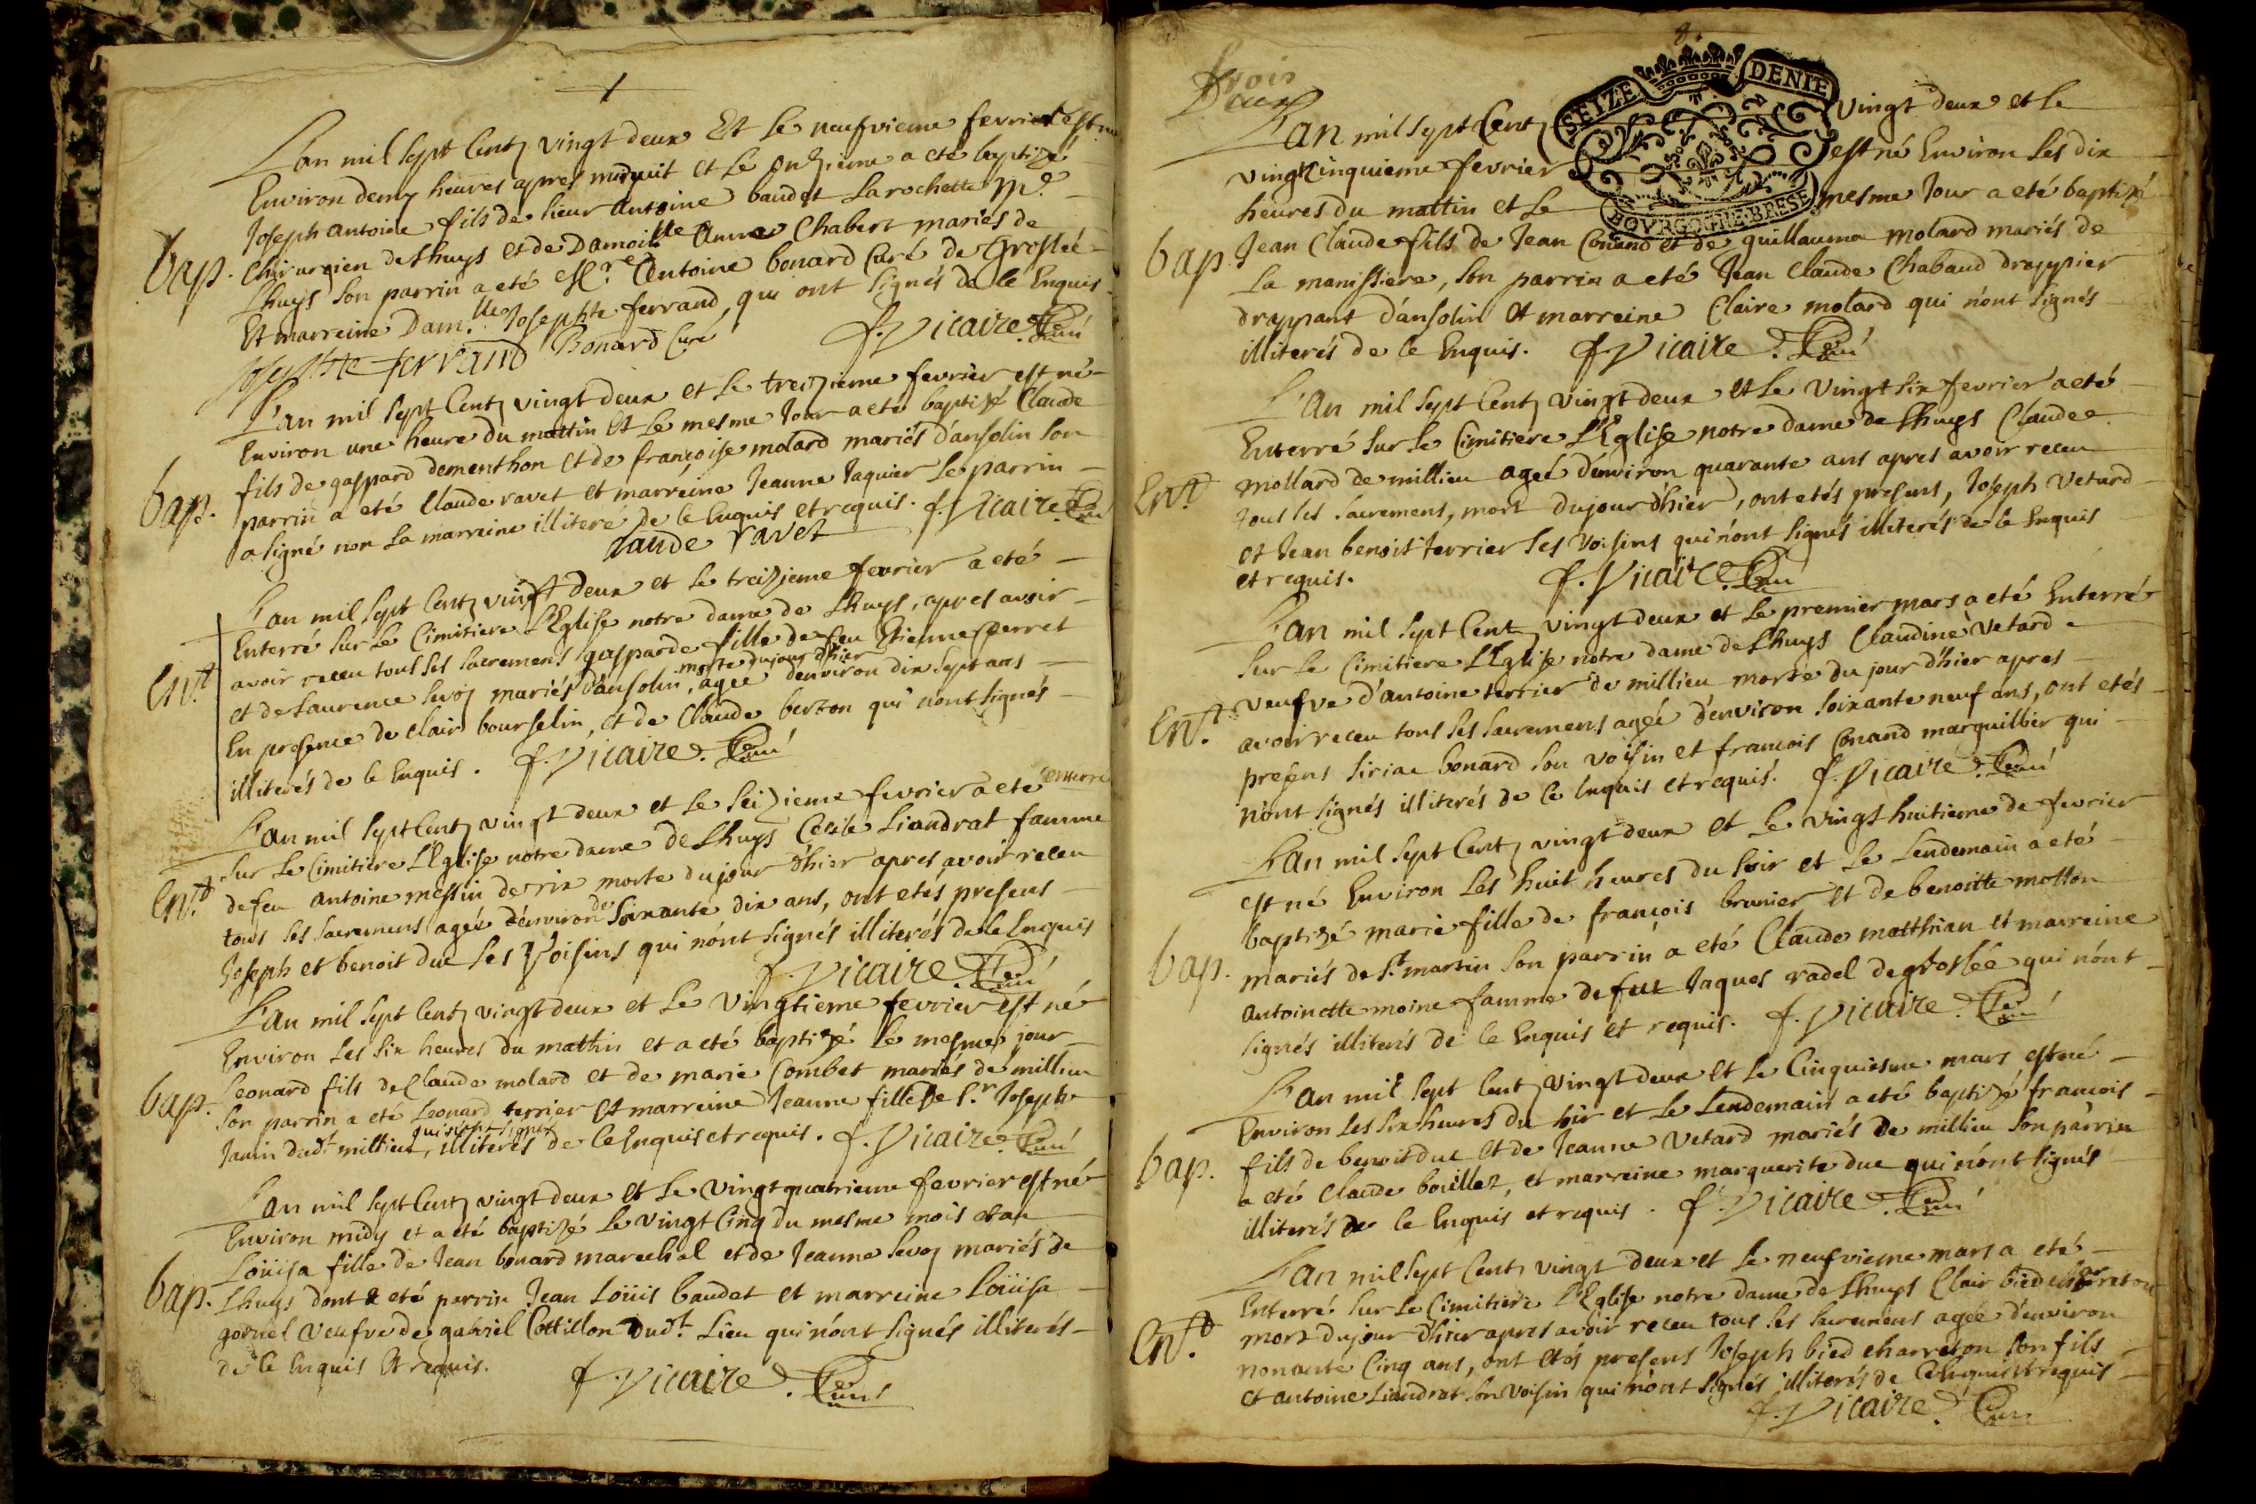 L'an mil sept Cent vingt deux Et le neufvieme fevrier est né
Environ demy heures apres minuit et le onzieme a eté baptizé
Joseph antoine fils de sieur antoine baudet Larochette Me
bap. Chirurgien de Lhuys et de Damoille Anne Chabert mariés de
Lhuys son parrin a eté Antoine bonard Curé de Groslée
Et marreine Damlle Josephte ferrand, qui ont signés de ce Enquis
Josephte ferrand Bonard Curé f. Vicaire. Curé
L'an mil sept Cent vingt deux et le treizieme fevrier est né
Environ une heure du mattin Et le mesme Jour a eté baptizé Claude
fils de gaspard dementhon et de françoise molard mariés d'ansolin son
bap. parrin a eté Claude ravet et marreine Jeanne Jaquier le parrin
a signé non La marraine illiteré de ce Enquis et requis. f. Vicaire. Curé
Claude ravet
L'an mil sept Cent vingt deux et le treizieme fevrier a eté
Enterré sur Le Cimitiere L'Eglise notre dame de Lhuys, apres avoir
avoir receu tous les sacremens gasparde fille de feu Etienne perret
morte du jour d'hier
Ent. et de Laurence Sevoz mariés d'ansolin, agée d'environ dix sept ans
En presence de Clair bourselin, et de Claude berton qui n'ont signés
illiterés de ce Enquis. f. Vicaire. Curé
L'an mil sept Cent vingt deux et le seizieme fevrier a eté enterré
sur Le Cimitiere L'Eglise notre dame de Lhuys Cecile Liaudrat famme
Ent. de feu antoine messin de rix morte du jour d'hier apres avoir receu
tous les sacremens agée d'environ de soixante dix ans, ont etés presens
Joseph et benoit duc ses Voisins qui n'ont signés illiterés de ce Enquis
f. Vicaire. Curé
L'an mil sept Cent vingt deux et le Vingtieme fevrier est né
Environ Les six heures du mattin et a eté baptizé le mesme jour
Leonard fils de Claude molard et de marie Combet mariés de millieu
bap. son parrin a eté Leonard terrier et marreine Jeanne fille de Sr Joseph
qui n'ont signés
Janin dudt millieu, illiterés de ce Enquis et requis. f. Vicaire. Curé
L'an mil sept Cent vingt deux et Le Vingt quatrieme fevrier est né
Environ midy et a eté baptizé Le vingt Cinq du mesme mois et an
Loüisa fille de Jean bonard marechal et de Jeanne Sevoz mariés de
bap. Lhuys dont a eté parrin Jean Loüis baudet et marreine Loüisa
gornel veufve de gabriel Cottillon dudt Lieu qui n'ont signés illiterés
de ce Enquis Et requis. f. Vicaire. Curé
8.
SEIZE DENIE
BOVRGOGNE·BRESE
L'an mil sept Cent vingt deux et le
vingt Cinquieme fevrier est né Environ les dix
heures du mattin et le mesme Jour a eté baptizé
bap Jean Claude fils de Jean Conand et de guillauma molard mariés de
La manissiere, son parrin a eté Jean Claude Chabaud drappier
drappant d'ansolin et marreine Claire molard qui n'ont signés
illiterés de ce Enquis. f. Vicaire. Curé
L'an mil sept Cent vingt deux et le Vingt six fevrier a eté
Enterré sur Le Cimitiere L'Eglise notre dame de Lhuys Claude
Ent mollard de millieu agé d'environ quarante ans apres avoir receu
tous les sacremens, mort du jour d'hier, ont etés presens, Joseph Vetard
et Jean benoit terrier ses Voisins qui n'ont signés illiterés de ce Enquis
et requis. f. Vicaire. Curé
L'an mil sept Cent vingt deux et Le premier mars a eté Enterré
sur le Cimitiere L'Eglise notre dame de Lhuys Claudine Vetard
veufve d'antoine terrier de millieu morte du jour d'hier apres
Ent. avoir receu tous les sacremens agée d'environ soixante neuf ans, ont etés
presens siriac bonard son voisin et francois Conand marguillier qui
n'ont signés illiterés de ce Enquis et requis. f. Vicaire. Curé
L'an mil sept Cent vingt deux et le vingt huitieme de fevrier
est né Environ Les huit heures du soir et le Lendemain a eté
baptizé marie fille de françois brunier et de benoitte motton
bap. mariés de St martin son parrin a eté Claude matthian et marreine
antoinette moine famme de feu Jaques radel de groslée qui n'ont
signés illiterés de ce Enquis et requis. f. Vicaire. Curé
L'an mil sept Cent vingt deux et le Cinquiesme mars est né
Environ Les six heures du soir et le Lendemain a eté baptizé francois
bap. fils de benoit duc et de Jeanne Vetard mariés de millieu son parrin
a eté Claude bouillet, et marreine marguerite duc qui n'ont signés
illiterés de ce Enquis et requis. f. Vicaire. Curé
L'an mil sept Cent vingt deux et Le neufvieme mars a eté
Enterré sur Le Cimitiere L'Eglise notre dame de Lhuys Clair bied charreton
Ent. mort du jour d'hier apres avoir receu tous les sacremens agée d'environ
nonante Cinq ans, ont etés presens Joseph bied charreton son fils
et antoine Liaudrat son voisin qui n'ont signés illiterés de ce Enquis et requis
f. Vicaire. Curé